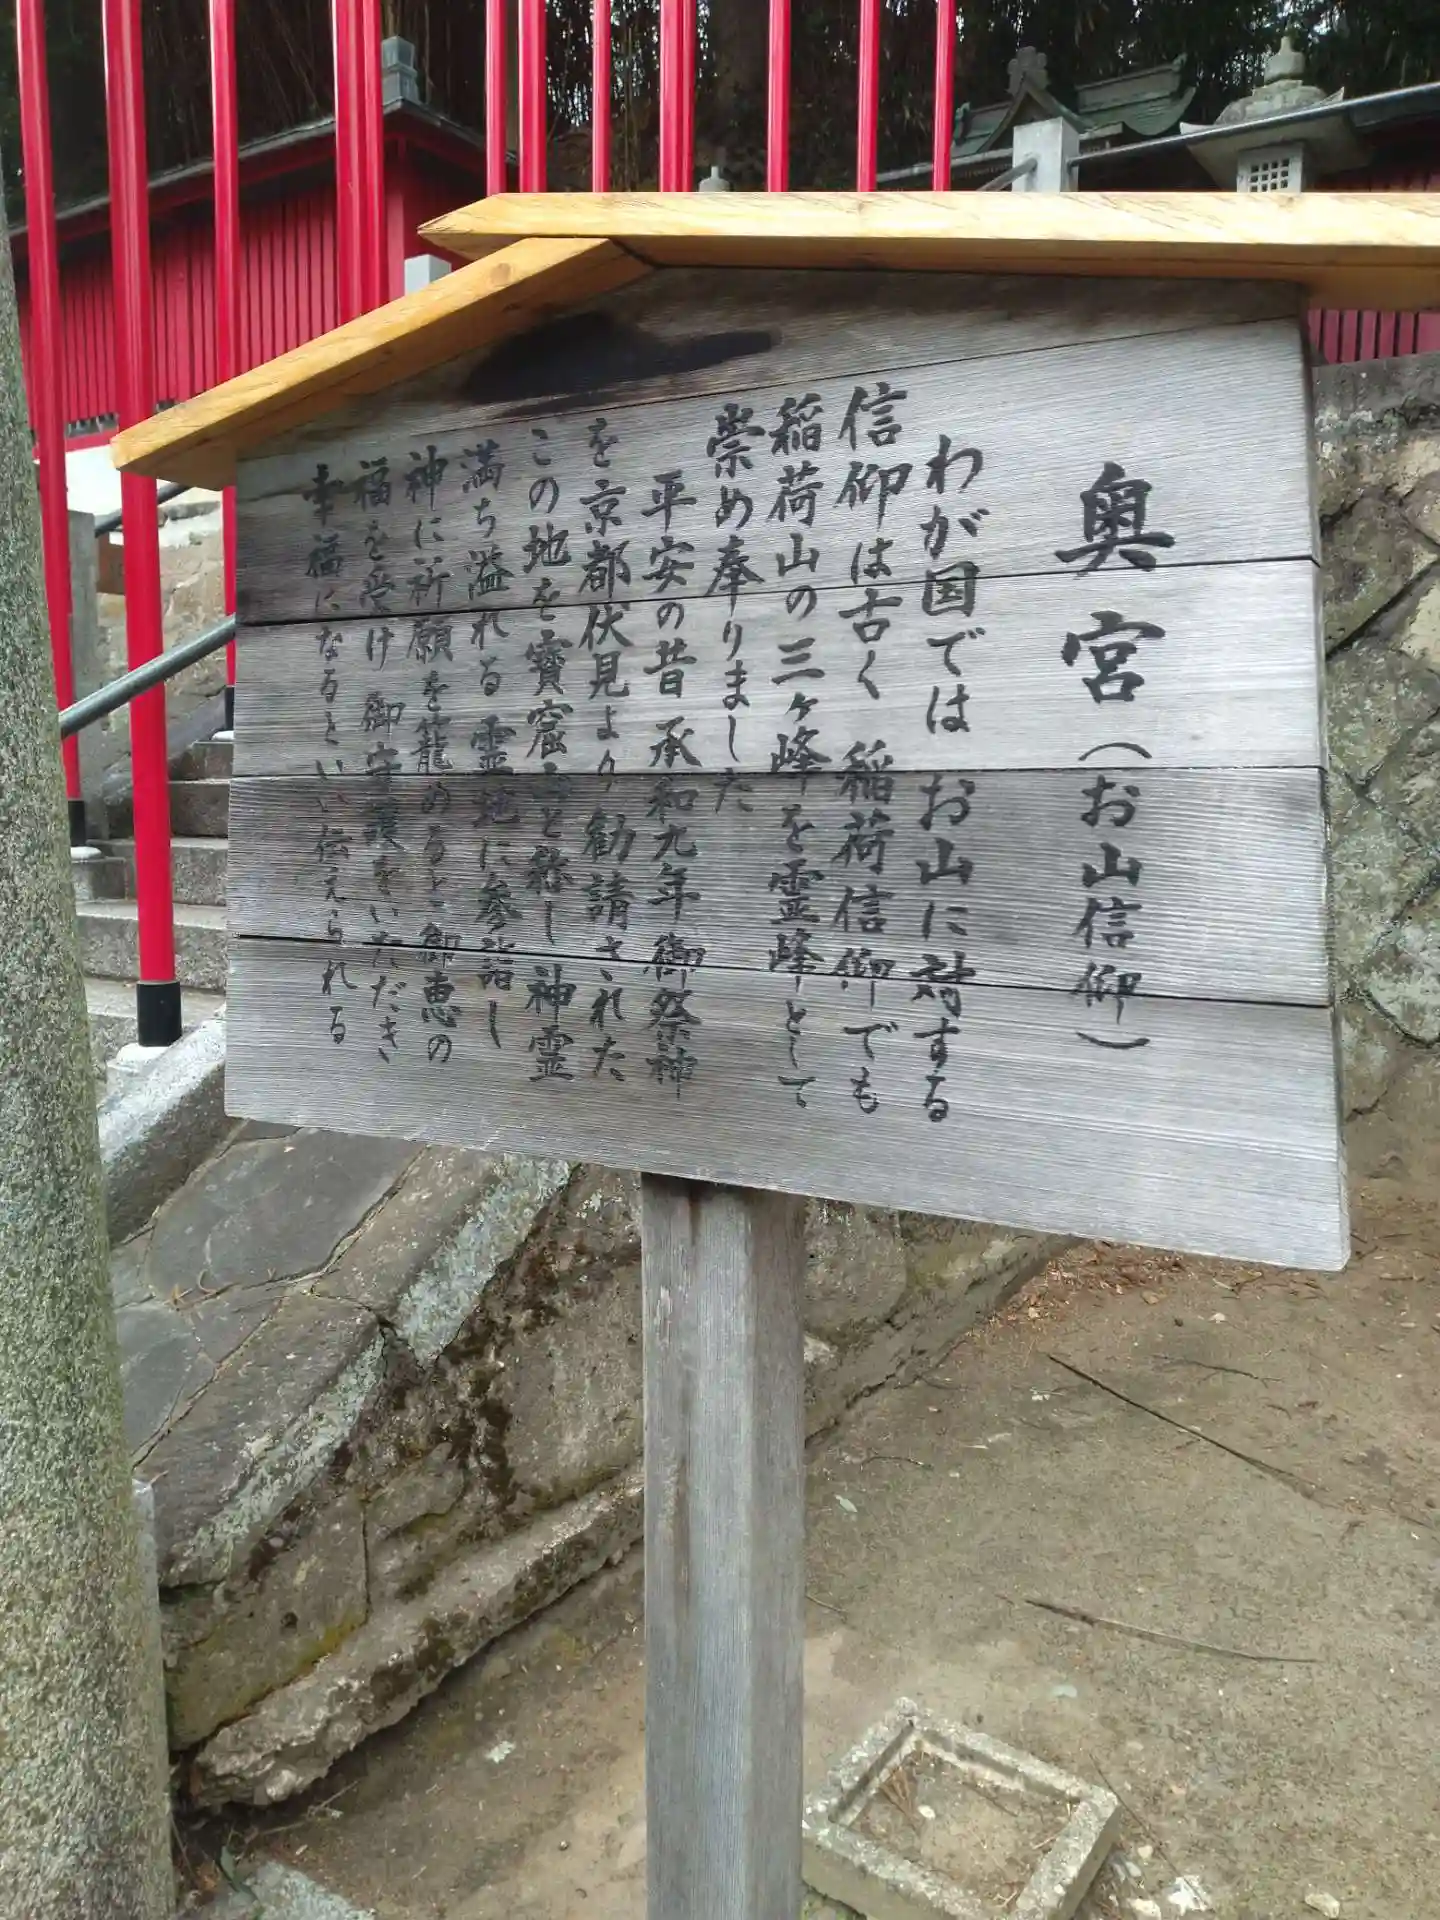 奥宮（お山信仰）
わが国では お山に対する
信仰は古く 稲荷信仰でも
稲荷山の三ヶ峰を霊峰として
崇め奉りました
平安の昔 承和九年 御祭神
を京都伏見より勧請された
この地を寳窟山と称し 神霊
満ち溢れる 霊地に参詣し
神に祈願を籠めると 御恵の
福を受け 御守護をいただき
幸福になるといい伝えられる